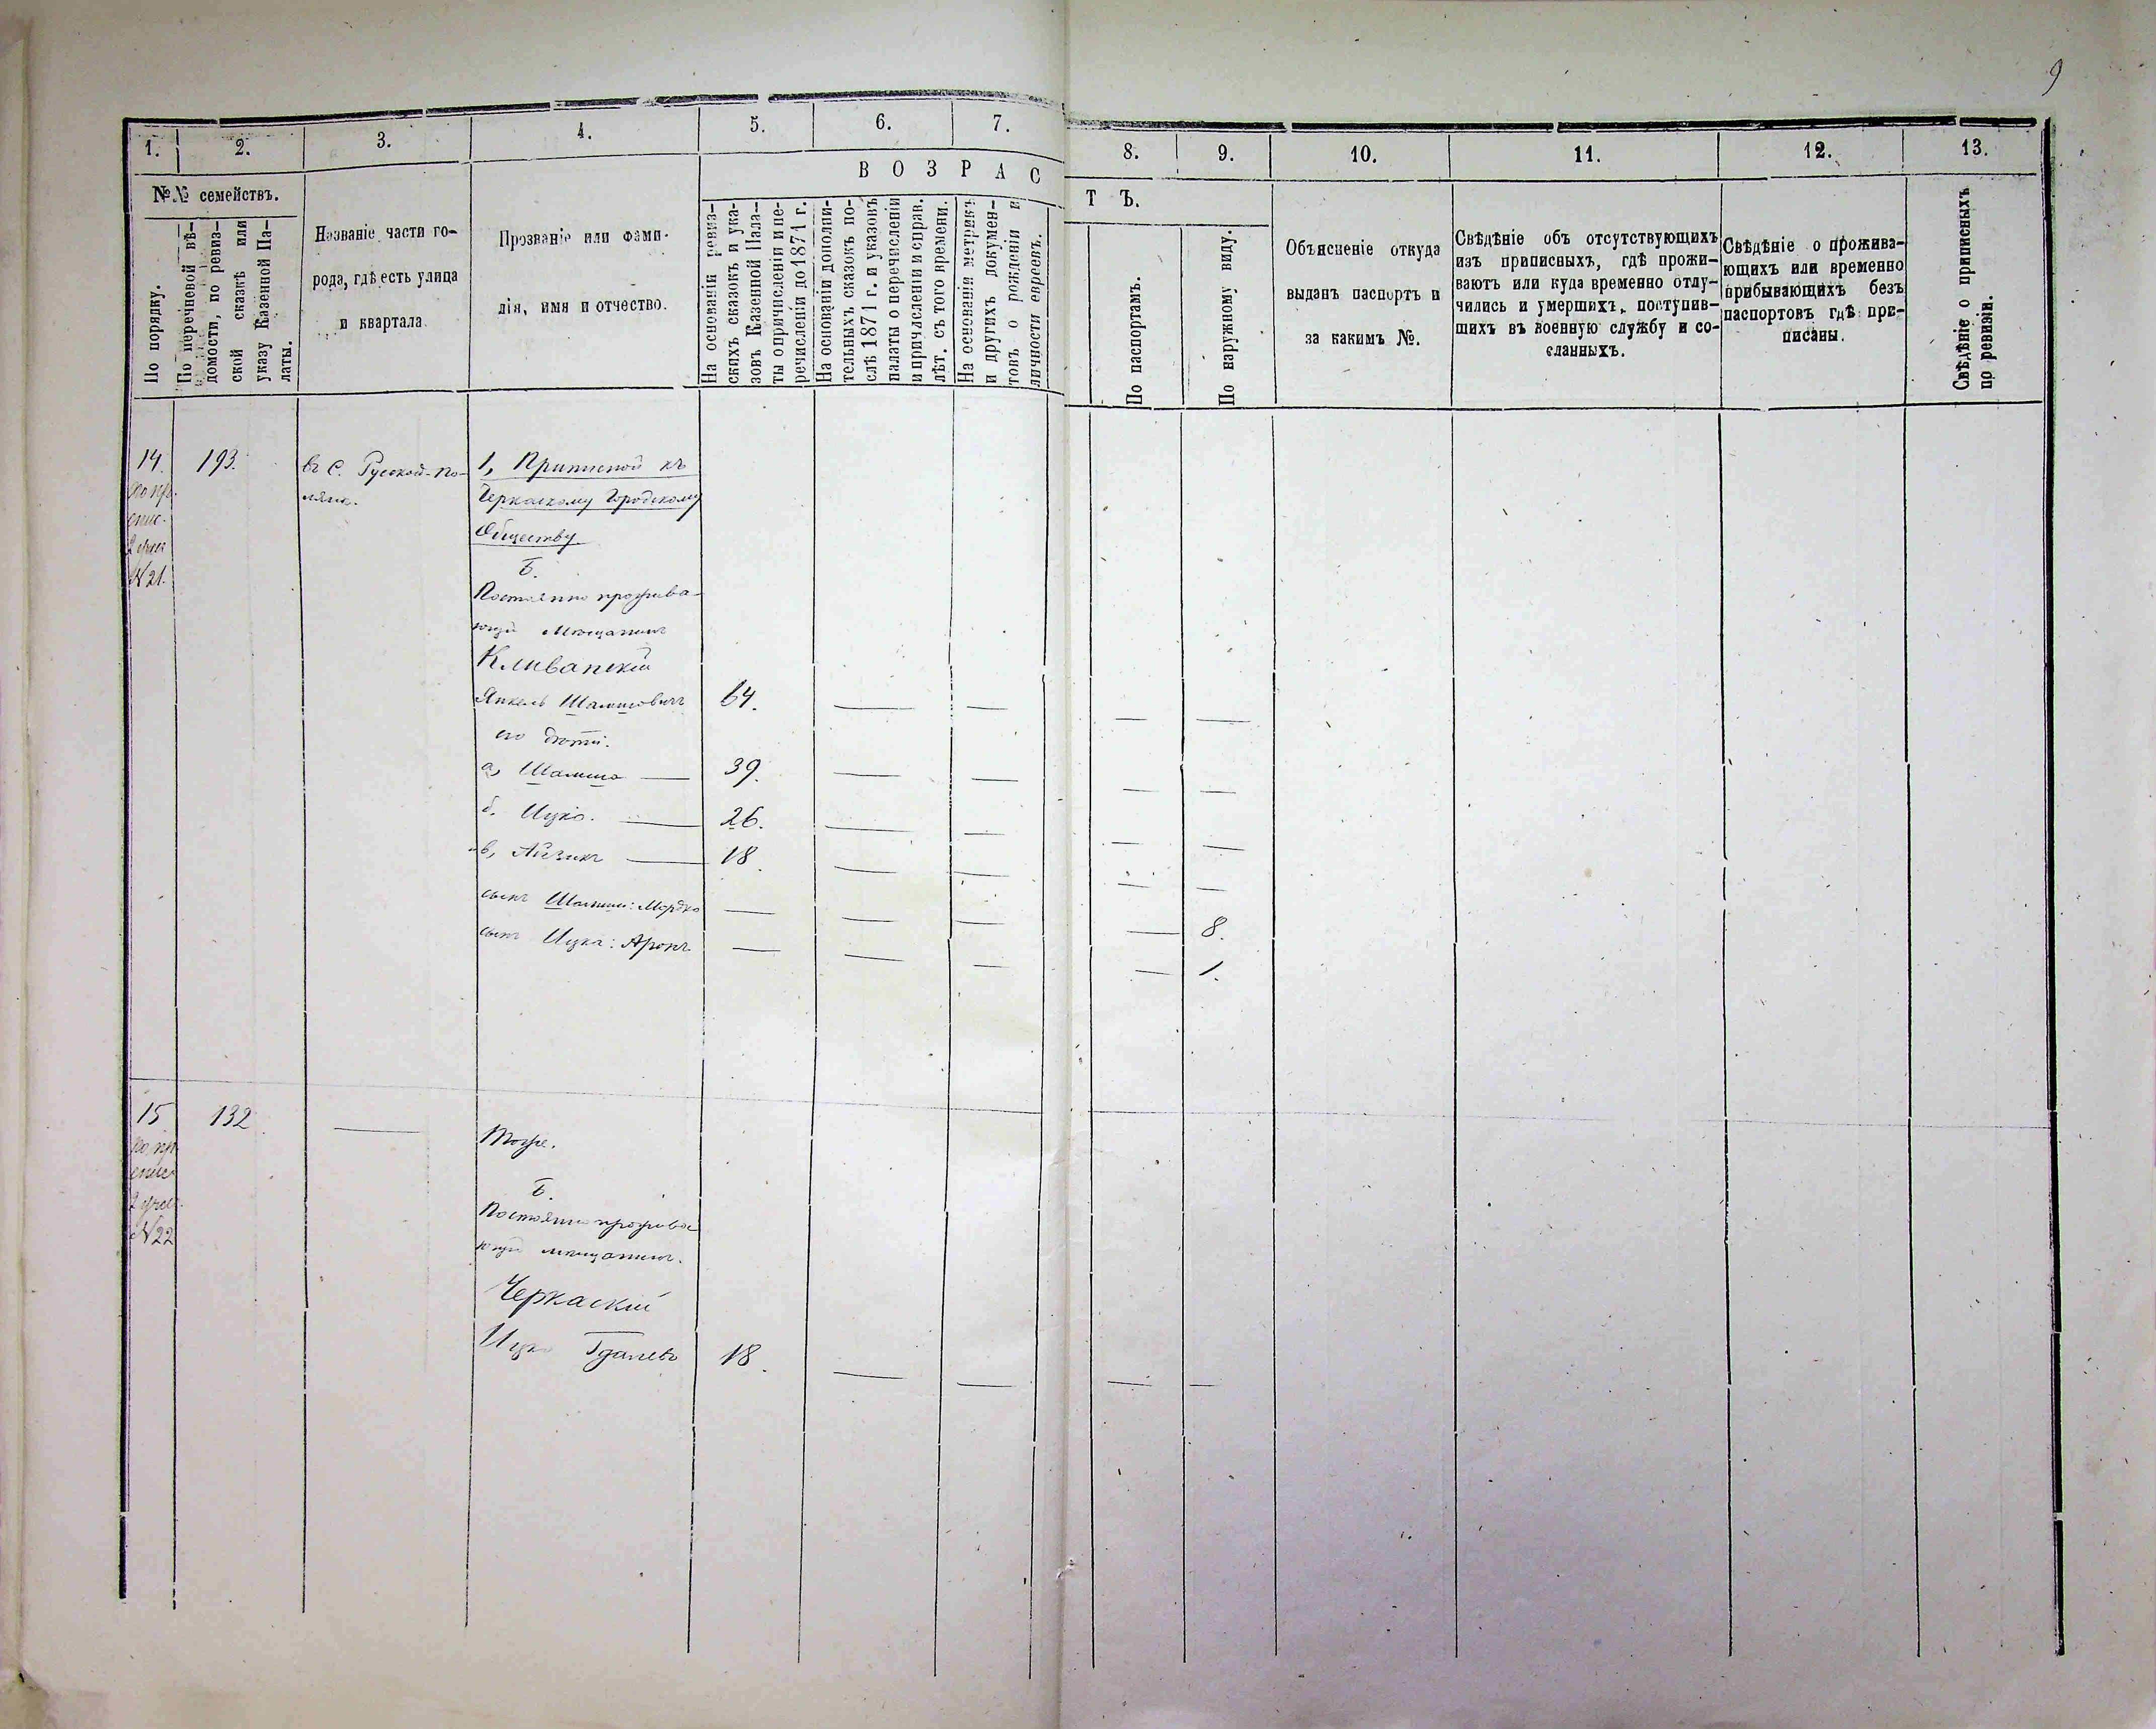 9
1. 2. 3. 4. 5. 6. 7. 8. 9. 10. 11. 12. 13.
№№ семействъ.
По порядку.
По перечневой вѣ-
домости, по ревиз-
ской сказкѣ или
указу Казенной Па-
латы.
Названіе части го-
рода, гдѣ есть улица
и квартала.
Прозваніе или фами-
лія, имя и отчество.
В О З Р А С Т Ъ.
На основаніи ревиз-
скихъ сказокъ и ука-
зовъ Казенной Пала-
ты о причисленіи и пе-
речисленіи до 1871 г.
На основаніи дополни-
тельныхъ сказокъ по-
слѣ 1871 г. и указовъ
палаты о перечисленіи
и причисленіи и справ.
лѣт. съ того времени.
На основаніи метрикъ
и другихъ докумен-
товъ о рожденіи и
личности евреевъ.
По паспортамъ.
По наружному виду.
Объясненіе откуда
выданъ паспортъ и
за какимъ №.
Свѣдѣніе объ отсутствующихъ
изъ приписныхъ, гдѣ прожи-
ваютъ или куда временно отлу-
чились и умершихъ, поступив-
шихъ въ военную службу и со-
сланныхъ.
Свѣдѣніе о прожива-
ющихъ или временно
прибывающихъ безъ
паспортовъ гдѣ при-
писаны.
Свѣдѣніе о приписныхъ
по ревизіи.
14. 193. въ С. Русской-По-
ляне.
по пр.
спис.
2 учас
№ 21.
1, Приписной къ
Черкаскому Городскому
Обществу
Б.
Постоянно прожива-
ющій Мѣщанинъ
Кливанскій
Янкель Шамшовичъ 64. — — — —
его дѣти:
а, Шамшо — 39. — — — —
б. Ицко. — 26. — — — —
в, Айзикъ — 18. — — — —
сынъ Шамши: Мордко — — — — 8.
сынъ Ицка: Аронъ — — — — 1.
15 132 — Тоже.
по пр
спис
2 учас.
№ 22
Б.
Постоянно прожива
ющій мѣщанинъ.
Черкаскій
Ицко Гдалевъ 18. — — — —